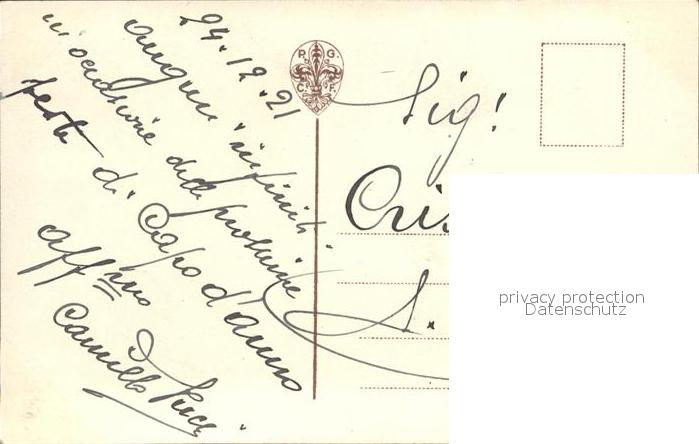 24.12.21
auguri infiniti
in occasione delle prossime
feste di Capo d'anno
aff mo
Camillo
R G
C F
Sig!
Cris
S.
privacy protection
Datenschutz